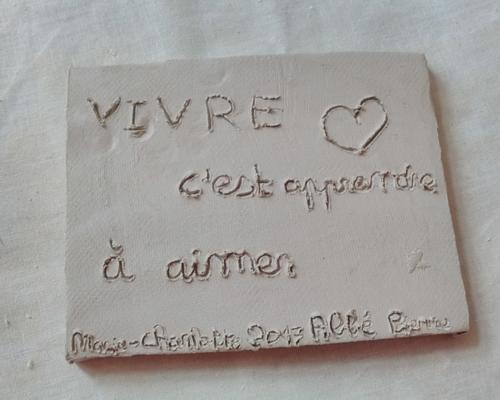 VIVRE
c'est apprendre
à aimer
Marie-Charlotte 2017 Abbé Pierre